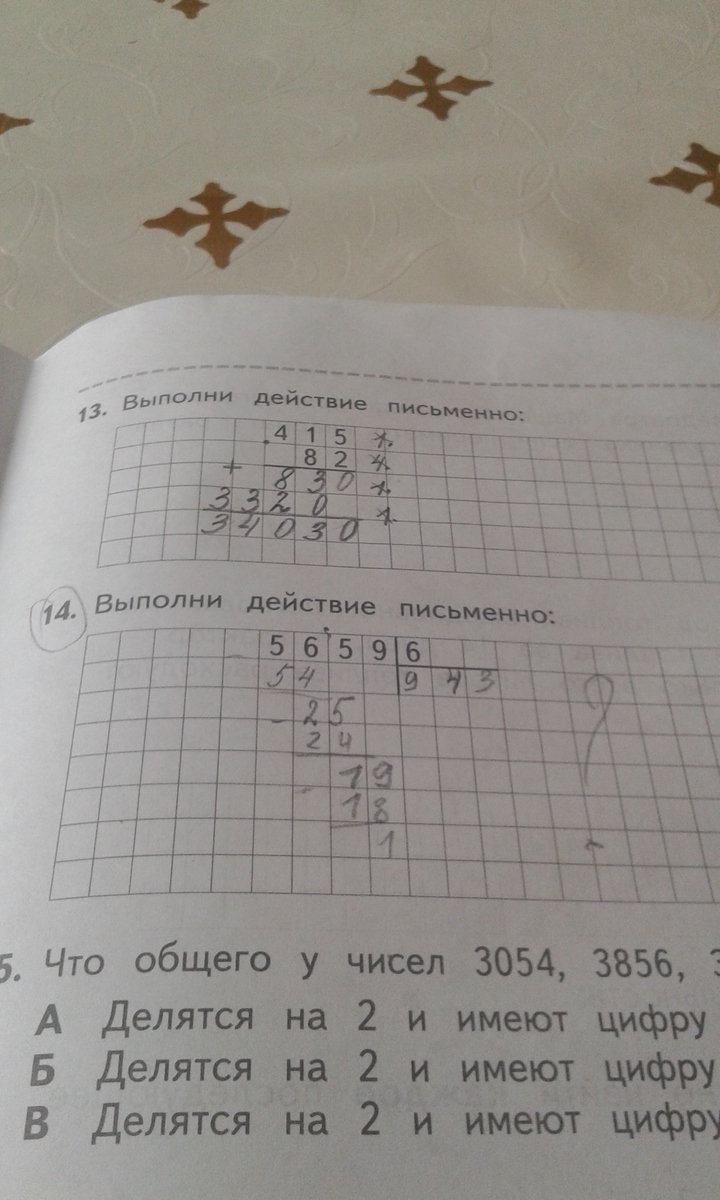 13. Выполни действие письменно:
415
82
+ 830
3320
34030
14. Выполни действие письменно:
5659 6
54 943
- 25
24
- 19
18
1
5. Что общего у чисел 3054, 3856, 3
А Делятся на 2 и имеют цифру
Б Делятся на 2 и имеют цифру
В Делятся на 2 и имеют цифру